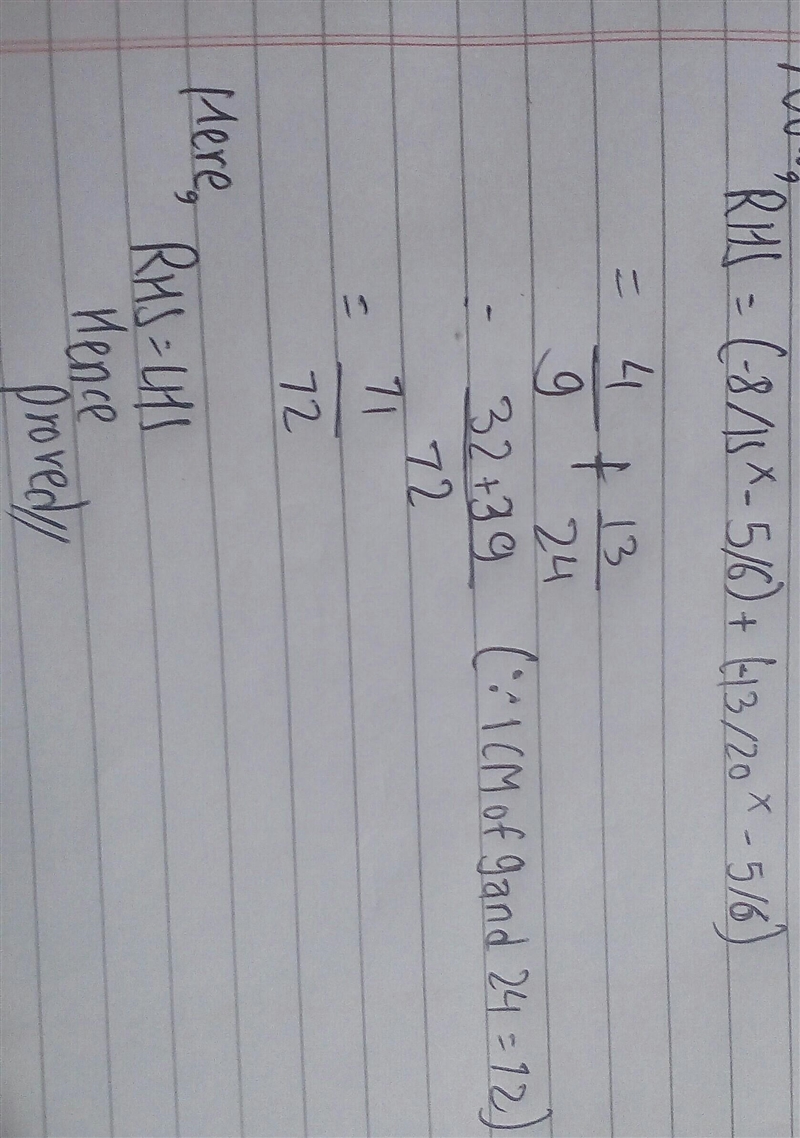 RHS = (-8/15 x - 5/6) + (-13/20 x - 5/6)
= 4/9 + 13/24
- 32+39/72 (∵ LCM of 9 and 24 = 72)
= 71/72
Here,
RHS = LHS
Hence
proved//